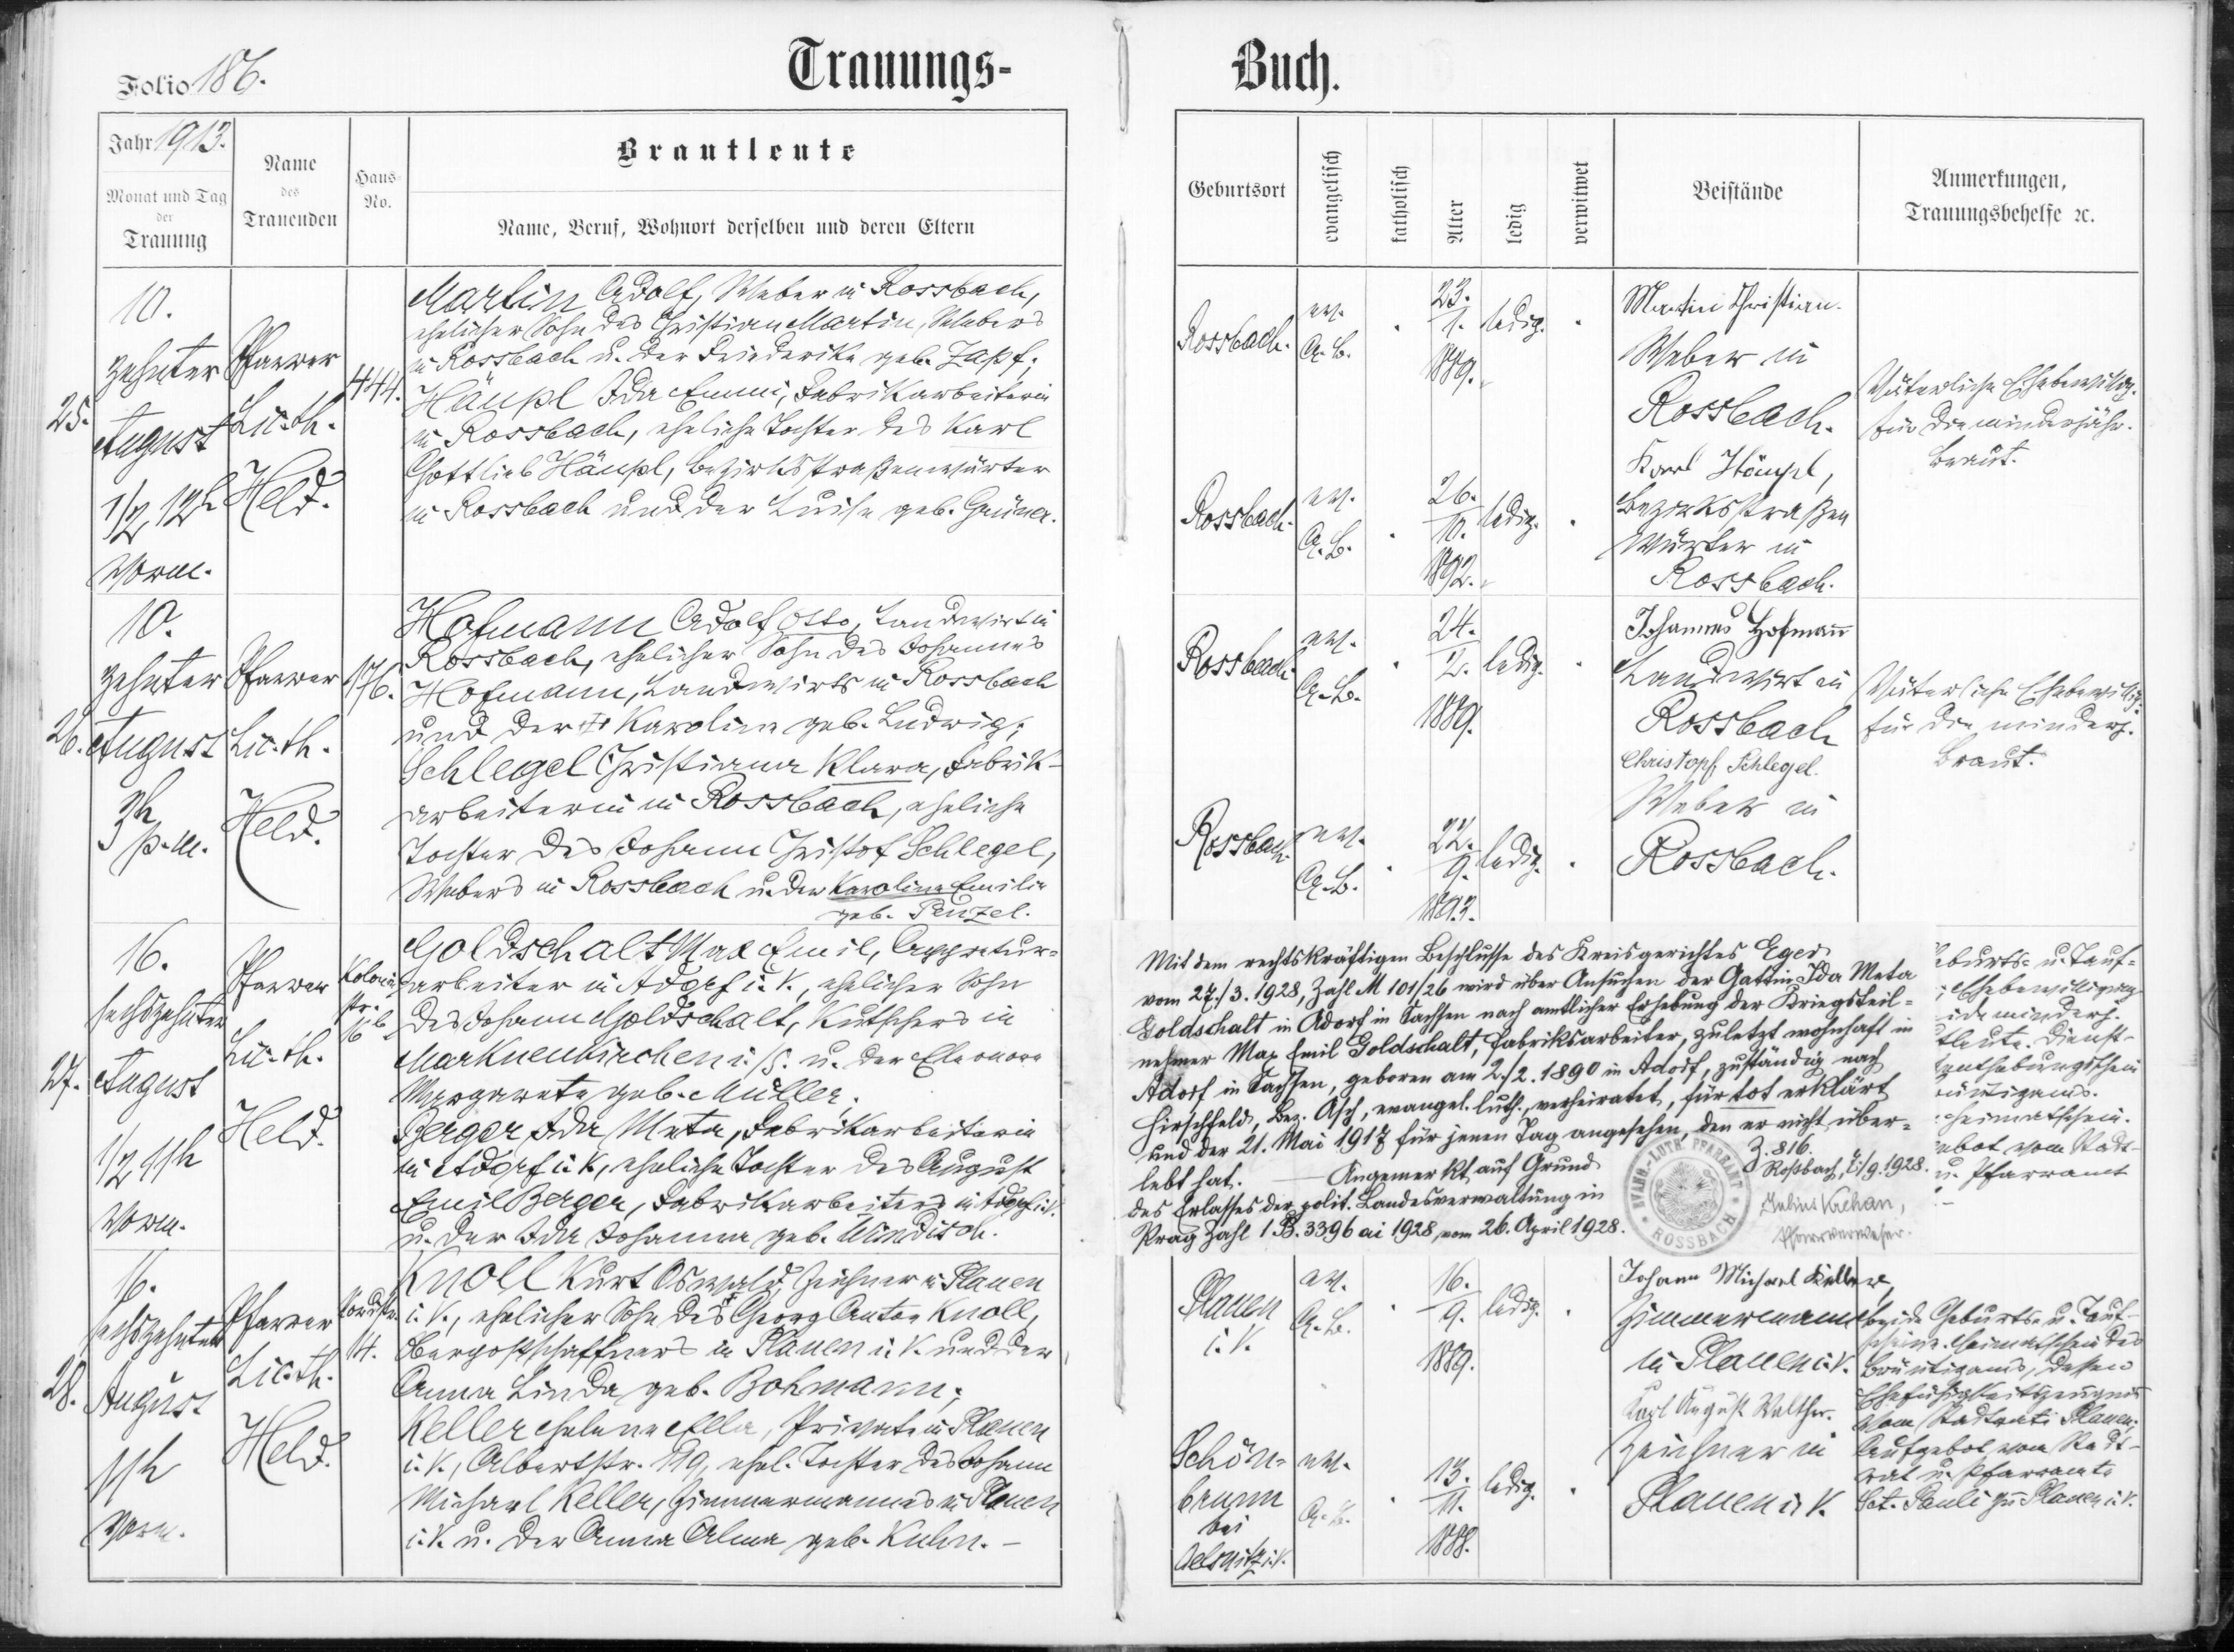 Folio 186.
Trauungs-
Buch.
Jahr 1913.
Monat und Tag
der
Trauung
Name
des
Trauenden
Haus-
No.
Brautleute
Name, Beruf, Wohnort derselben und deren Eltern
Geburtsort
evangelisch
katholisch
Alter
ledig
verwitwet
Beistände
Anmerkungen,
Trauungsbehelfe ꝛc.
25.
10.
zehnter
August
1/2 12h
Vorm.
Pfarrer
Lic. th.
Held.
444.
Martin Adolf, Weber in Rossbach,
ehelicher Sohn des Christian Martin, Webers
in Rossbach u. der Friederike geb. Zapf;
Häupl Ida Emmi, Fabrikarbeiterin
in Rossbach, eheliche Tochter des Karl
Gottlieb Häupl, Bezirksstraßenwärter
in Rossbach und der Luise geb. Grüner.
Rossbach.
ev.
A. B.
23.
1.
1889.
ledig.
Rossbach.
ev.
A. B.
26.
10.
1892.
ledig.
Martin Christian.
Weber in
Rossbach.
Karl Häupl,
Bezirksstraßen
Wärter in
Rossbach.
Väterliche Ehebewillig.
für die minderjähr.
Braut.
26.
10.
zehnter
August
3h
p. m.
Pfarrer
Lic. th.
Held.
176.
Hofmann Adolf Otto, Landwirt in
Rossbach, ehelicher Sohn des Johannes
Hofmann, Landwirts in Rossbach
und der Karoline geb. Ludwig;
Schlegel Christiana Klara, Fabrik-
arbeiterin in Rossbach, eheliche
Tochter des Johann Christof Schlegel,
Webers in Rossbach u. der Karoline Emilie
geb. Penzel.
Rossbach.
ev.
A. B.
24.
2.
1889.
ledig.
Rossbach.
ev.
A. B.
22.
9.
1893.
ledig.
Johannes Hofmann
Landwirt in
Rossbach
Christoph Schlegel.
Weber in
Rossbach.
Väterliche Ehebewillig.
für die minderj.
Braut.
27.
16.
sechszehnter
August
1/2 11h
Vorm.
Pfarrer
Lic. th.
Held.
Kolonie
str.
16
Goldschalt Max Emil, Appretur-
arbeiter in Adorf i. V., ehelicher Sohn
des Johann Goldschalt, Kutschers in
Markneukirchen i. S. u. der Eleonore
Margarete geb. Müller;
Berger Ida Meta, Fabrikarbeiterin
in Adorf i. V., eheliche Tochter des August
Emil Berger, Fabrikarbeiters in Adorf i. V.
u. der Ida Johanna geb. Windisch.
Mit dem rechtskräftigen Beschlusse des Kreisgerichtes Eger
vom 27./3. 1928, Zahl M 101/26 wird über Ansuchen der Gattin Ida Meta
Goldschalt in Adorf in Sachsen nach amtlicher Erhebung der Kriegsteil-
nehmer Max Emil Goldschalt, Fabriksarbeiter, zuletzt wohnhaft in
Adorf in Sachsen, geboren am 2./2. 1890 in Adorf, zuständig nach
Hirschfeld, Bez. Asch, evangel. luth., verheiratet, für tot erklärt
und der 21. Mai 1917 für jenen Tag angesehen, den er nicht über-
lebt hat. — Angemerkt auf Grund
des Erlasses der polit. Landesverwaltung in
Prag Zahl 1 B. 3396 ai 1928 vom 26. April 1928.
Z. 816.
Roßbach, 1./9. 1928.
Pfarrverweser.
EVANG.-LUTH. PFARRAMT
ROSSBACH
burts- u. Tauf-
Ehebewilligung
minderj.
tleute. Dienst-
enthebungsschein
äutigams.
heimatschein.
ebot vom Stadt-
u. Pfarramt
28.
16.
sechszehnter
August
11h
Vorm.
Pfarrer
Lic. th.
Held.
14.
Knoll Kurt Oswald, Zeichner in Plauen
i. V., ehelicher Sohn des Georg Anton Knoll,
Oberpostschaffners in Plauen i. V. und der
Anna Linda geb. Bohmann;
Keller Helene Ella, Private in Plauen
i. V., Albertstr. 119, ehel. Tochter des Johann
Michael Keller, Zimmermannes in Plauen
i. V. u. der Anna Alma geb. Kuhn. –
Plauen
i. V.
ev.
A. B.
16.
9.
1889.
ledig.
Schön-
brunn
bei
Oelsnitz i. V.
ev.
A. B.
13.
11.
1888.
ledig.
Johann Michael Keller,
Zimmermann
in Plauen i. V.
Karl August Walther.
Zeichner in
Plauen i. V.
beide Geburts- u. Tauf-
scheine. Heimatschein des
Bräutigams, dessen
Ehefähigkeitszeugnis
vom Stadtrate Plauen;
Aufgebot vom Stadt-
rat u. Pfarramte
Sct. Pauli zu Plauen i. V.